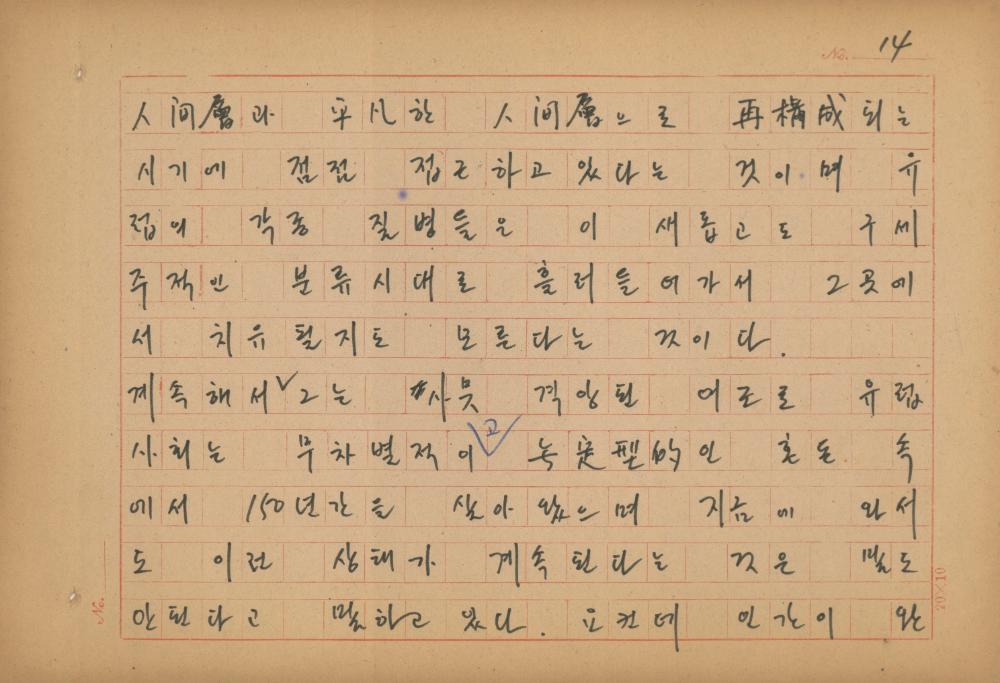 No. 14
人间層과 平凡한 人间層으로 再構成되는
시기에 점점 접근하고 있다는 것이며 유
럽의 각종 질병들은 이 새롭고도 구세
주적인 분류시대로 흘러들어가서 그곳에
서 치유될지도 모른다는 것이다.
계속해서 그는 사뭇 격앙된 어조로 유럽
사회는 무차별적이고 定型的인 혼돈 속
에서 150년간을 살아왔으며 지금에 와서
도 이런 상태가 계속된다는 것은 말도
안된다고 말하고 있다. 요컨데 인간이 완
No.
20×10